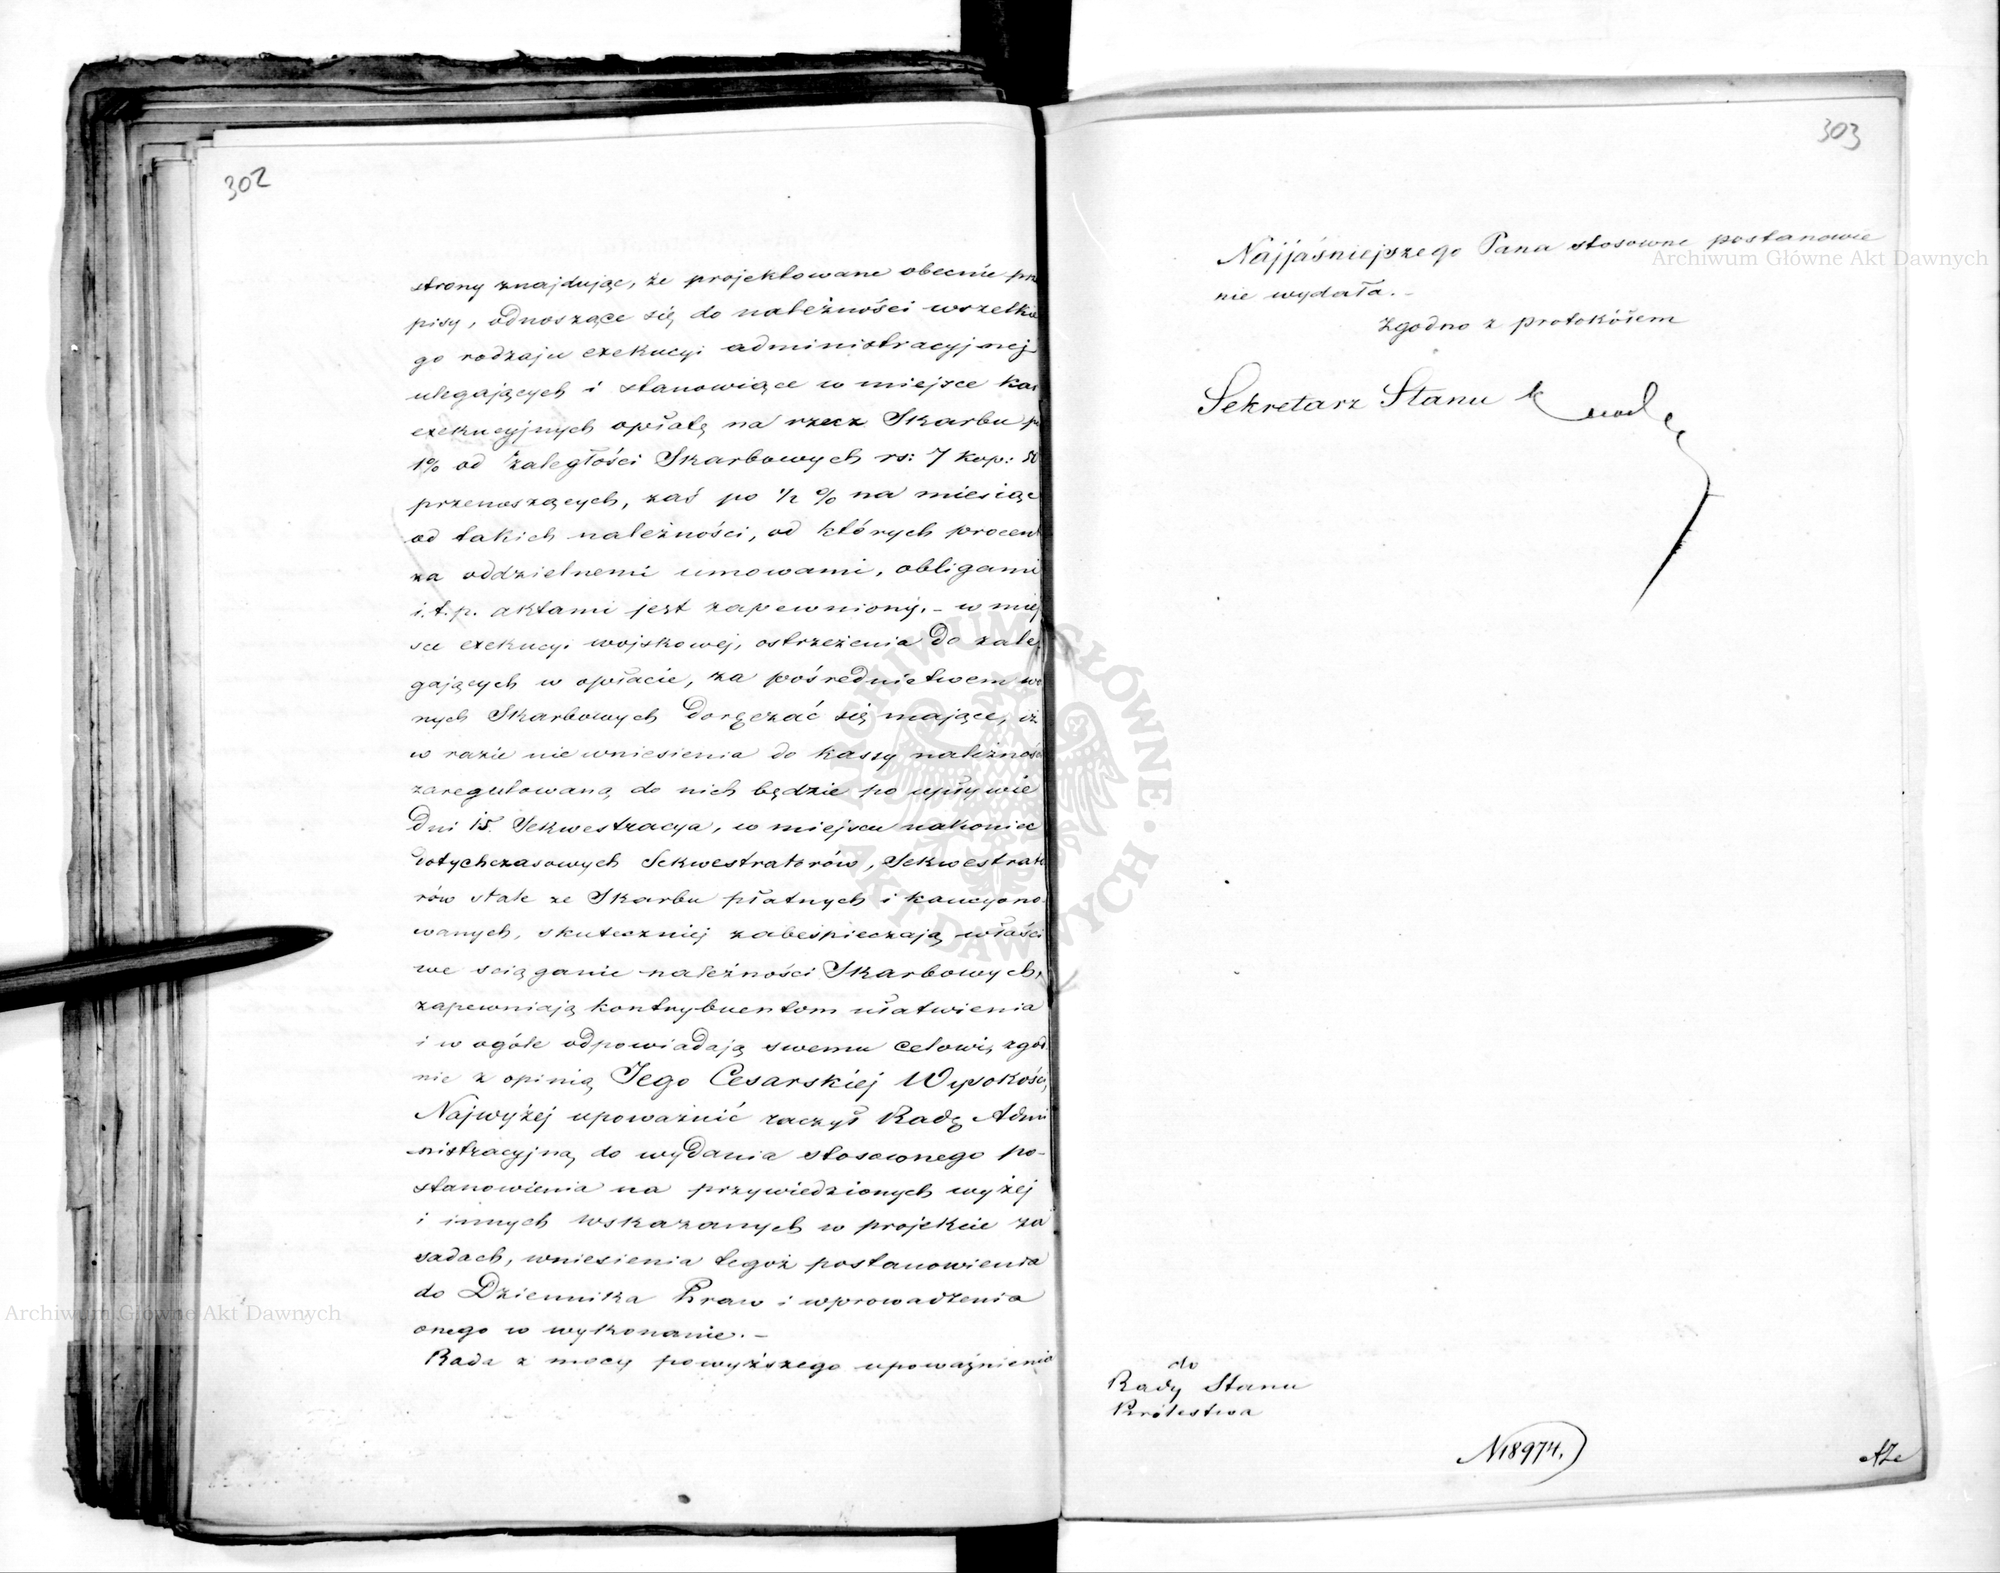 302
strony znajdując, że projektowane obecnie prze
pisy, odnoszące się do należności wszelkie
go rodzaju exekucyi administracyjnej
ulegających i stanowiące w miejsce kar
exekucyjnych opłatę na rzecz Skarbu po
1% od zaległości Skarbowych rs: 7 kop: 50
przenoszących, zaś po ½ % na miesiąc
od takich należności, od których procent
za oddzielnemi umowami, obligami
i.t.p. aktami jest zapewniony, - w miej
sce exekucyi wojskowej, ostrzeżenia do zale
gających w opłacie, za pośrednictwem wo
nych Skarbowych doręczać się mające, iż
w razie nie wniesienia do kassy należność
zaregulowaną do nich będzie po upływie
dni 15. Sekwestracya, w miejscu nakoniec
dotychczasowych Sekwestratorów, Sekwestrato
rów stale ze Skarbu płatnych i kaucyono
wanych, skuteczniej zabespieczają właści
we sciąganie należności Skarbowych,
zapewniają kontrybuentom ułatwienia
i w ogóle odpowiadają swemu celowi, zgod
nie z opinią Jego Cesarskiej Wysokości,
Najwyżej upoważnić raczył Radę Admi
nistracyjną do wydania stosownego po-
stanowienia na przywiedzionych wyżej
i innych wskazanych w projekcie za
sadach, wniesienia tegoż postanowienia
do Dziennika Praw i wprowadzenia
onego w wykonanie. -
Rada z mocy powyższego upoważnienia
303
Najjaśniejszego Pana stosowne postanowie
nie wydała. -
Zgodno z protokółem
Sekretarz Stanu
do
Rady Stanu
Królestwa
N 18974.
Archiwum Główne Akt Dawnych
Archiwum Główne Akt Dawnych
ARCHIWUM GŁÓWNE AKT DAWNYCH